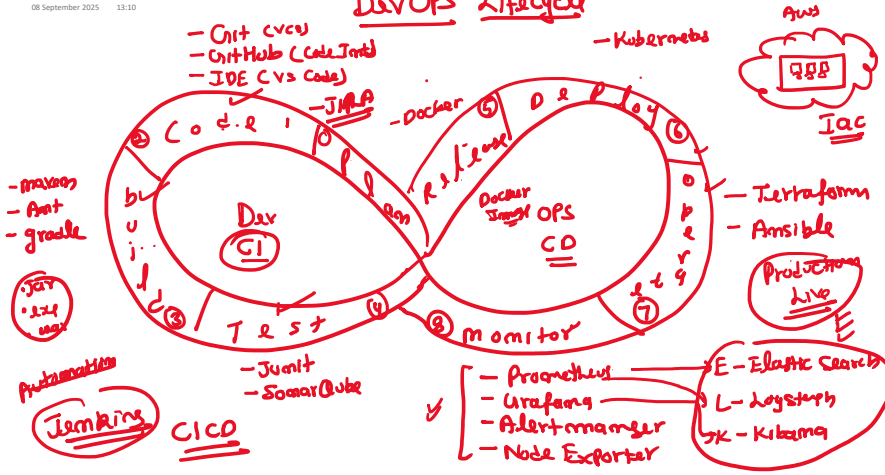 08 September 2025 13:10
DevOPS Lifecycle
- Git (VCS)
- GitHub (Code Imt)
- IDE (VS Code)
- JIRA
- Docker
- Kubernetes
AWS
Iac
② Code
① Plan
⑤ Release
Deploy ⑥
- maven
- Ant
- gradle
build ③
Dev
CI
Docker Image
OPS
CD
operate ⑦
- Terraform
- Ansible
Production
Live
.Jar
.exe
.war
Test ④
⑧ monitor
- Junit
- SonarQube
Automation
Jenkins
CICD
- Prometheus
- Grafana
- Alertmanager
- Node Exporter
E - Elastic Search
L - Logstash
K - Kibana